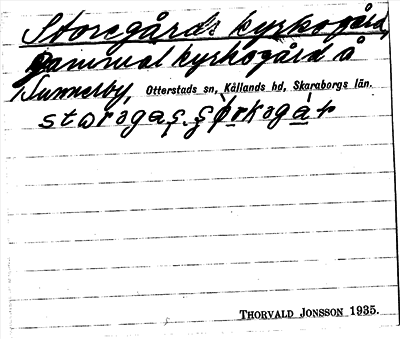 Storegårds kyrkogård,
gammal kyrkogård å
Sunnerby, Otterstads sn, Kållands hd, Skaraborgs län.
THORVALD JONSSON 1935.